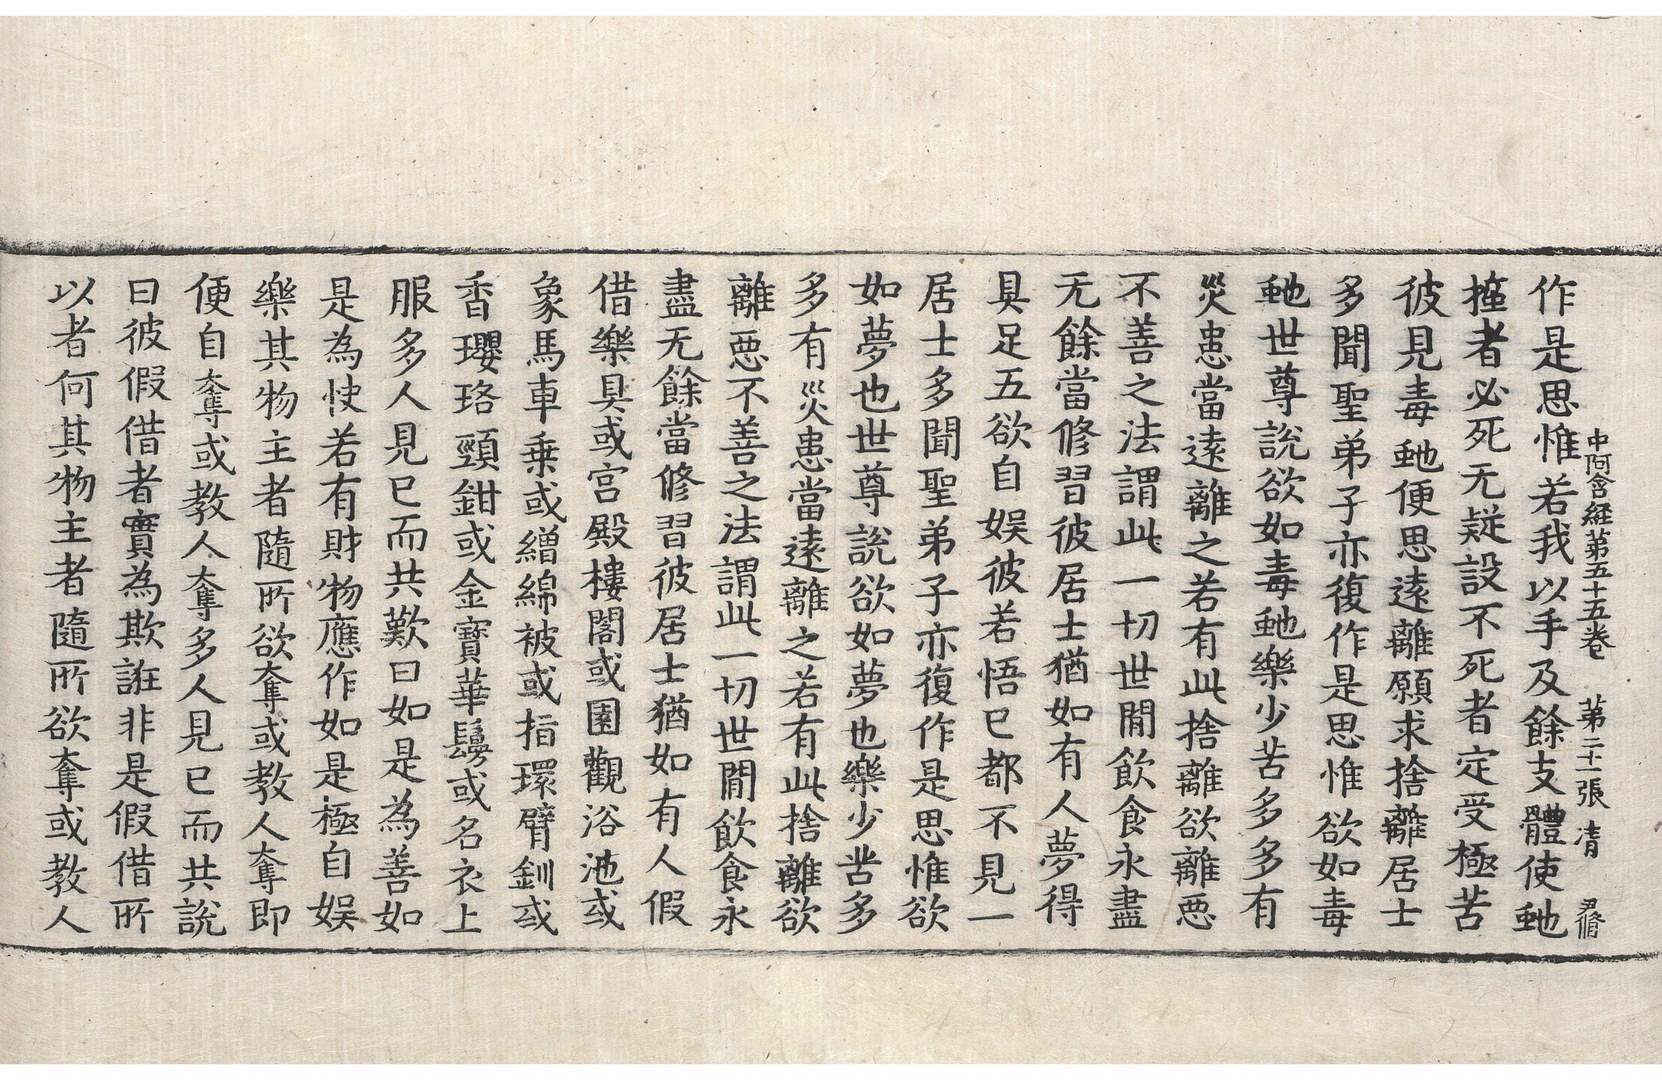 中阿含經第五十五卷　第二十一張　清　尹脩
作是思惟若我以手及餘支體使虵
㨔者必死无疑設不死者定受極苦
彼見毒虵便思遠離願求捨離居士
多聞聖弟子亦復作是思惟欲如毒
虵世尊說欲如毒虵樂少苦多多有
災患當遠離之若有此捨離欲離惡
不善之法謂此一切世間飲食永盡
无餘當修習彼居士猶如有人夢得
具足五欲自娛彼若悟已都不見一
居士多聞聖弟子亦復作是思惟欲
如夢也世尊說欲如夢也樂少苦多
多有災患當遠離之若有此捨離欲
離惡不善之法謂此一切世間飲食永
盡无餘當修習彼居士猶如有人假
借樂具或宮殿樓閣或園觀浴池或
象馬車乗或繒綿被或指環臂釧或
香瓔珞頸鉗或金寶華鬘或名衣上
服多人見已而共歎曰如是為善如
是為快若有財物應作如是極自娛
樂其物主者隨所欲奪或教人奪即
便自奪或教人奪多人見已而共說
曰彼假借者實為欺誑非是假借所
以者何其物主者隨所欲奪或教人